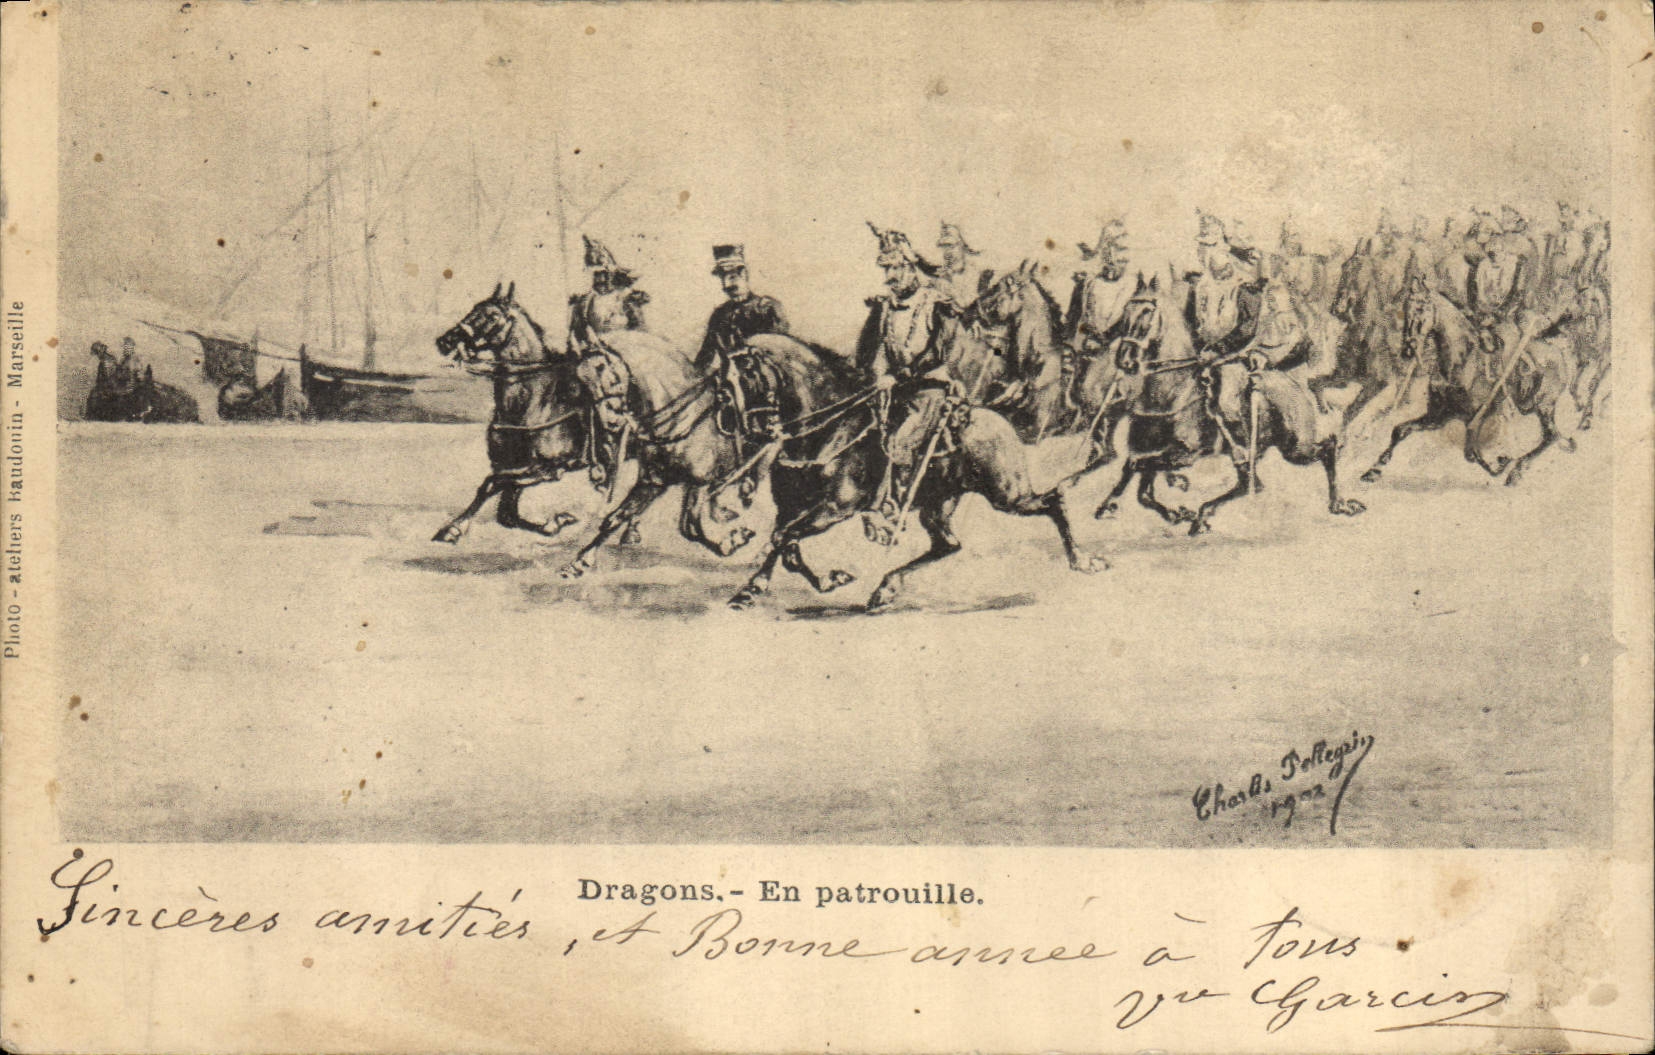 Photo - ateliers Baudouin - Marseille
Charles Pellegrin
1902
Dragons. - En patrouille.
Sincères amitiés, et Bonne année à tous
Vve Garcin